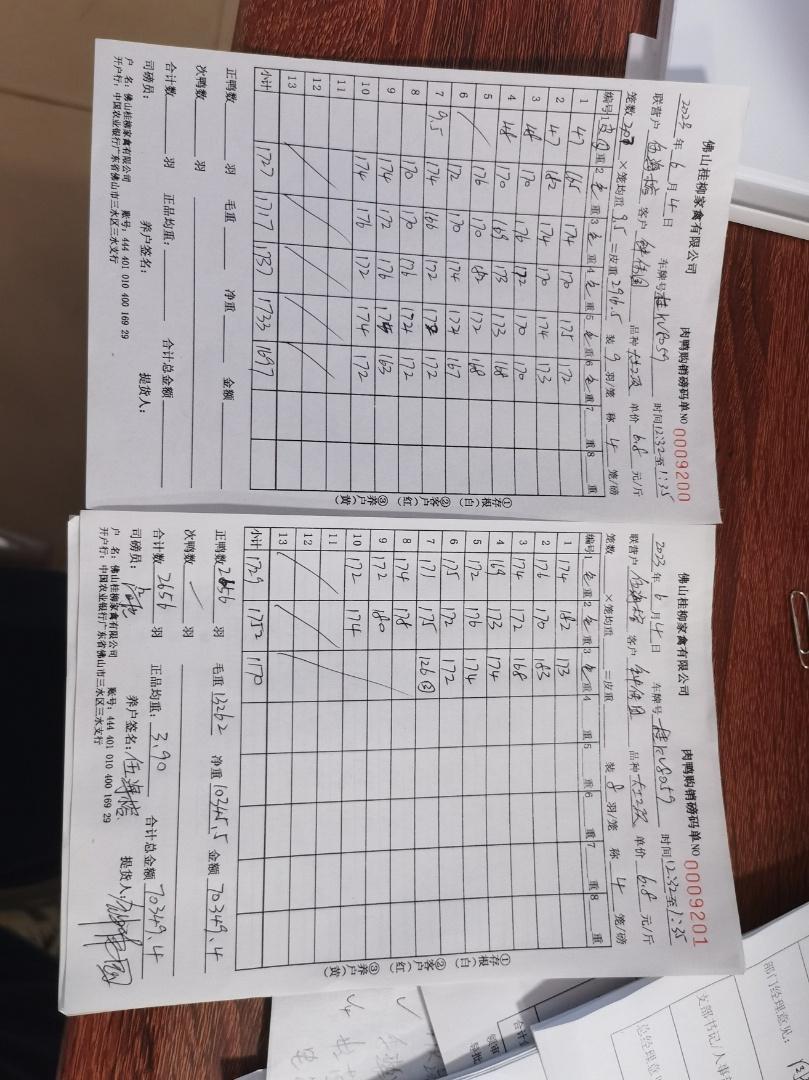 佛山桂柳家禽有限公司 肉鸭购销磅码单 NO 0009200
2023年6月4日 车牌号 桂KV8059 时间 12:32至1:35
联营户 客户 品种 大土2级 单价 6.8 元/斤
笼数 ×笼均重 9.5 =皮重 2916.5 装 9 羽/笼 称 4 笼/磅
编号 1 重2 重3 重4 重5 重6 重7 重8 重
1 47 165 174 170 175 172
2 47 182 174 170 174 173
3 48 170 176 172 170 170
4 48 170 169 173 173 168
5 176 170 182 172 168
6 172 170 174 172 167
7 9.5 174 166 172 172 172
8 170 170 176 172 172
9 174 172 176 175 163
10 174 176 172 174 172
11
12
13
小计 1727 1717 1737 1733 1697
正鸭数 羽 毛重 净重 金额
次鸭数 羽
合计数 羽 正品均重: 合计总金额
司磅员: 养户签名: 提货人:
户 名: 佛山桂柳家禽有限公司 账号: 444 401 010 400 169 29
开户行: 中国农业银行广东省佛山市三水区三水支行
①存根(白) ②客户(红) ③养户(黄)
佛山桂柳家禽有限公司 肉鸭购销磅码单 NO 0009201
2023年6月4日 车牌号 桂KV8059 时间 12:32至1:35
联营户 伍海培 客户 品种 大土2级 单价 6.8 元/斤
笼数 ×笼均重 =皮重 装 8 羽/笼 称 4 笼/磅
编号 1 重2 重3 重4 重5 重6 重7 重8 重
1 174 182 173
2 176 170 183
3 174 172 168
4 169 173 174
5 172 176 174
6 175 172 172
7 171 175 126③
8 174 178
9 172 180
10 172 174
11
12
13
小计 1729 1752 1170
正鸭数 2656 羽 毛重 13262 净重 10345.5 金额 70349.4
次鸭数 羽
合计数 2656 羽 正品均重: 3.90 合计总金额 70349.4
司磅员: 养户签名: 伍海培 提货人:
户 名: 佛山桂柳家禽有限公司 账号: 444 401 010 400 169 29
开户行: 中国农业银行广东省佛山市三水区三水支行
①存根(白) ②客户(红) ③养户(黄)
部门经理意见:
支部书记/人事
总经理意见